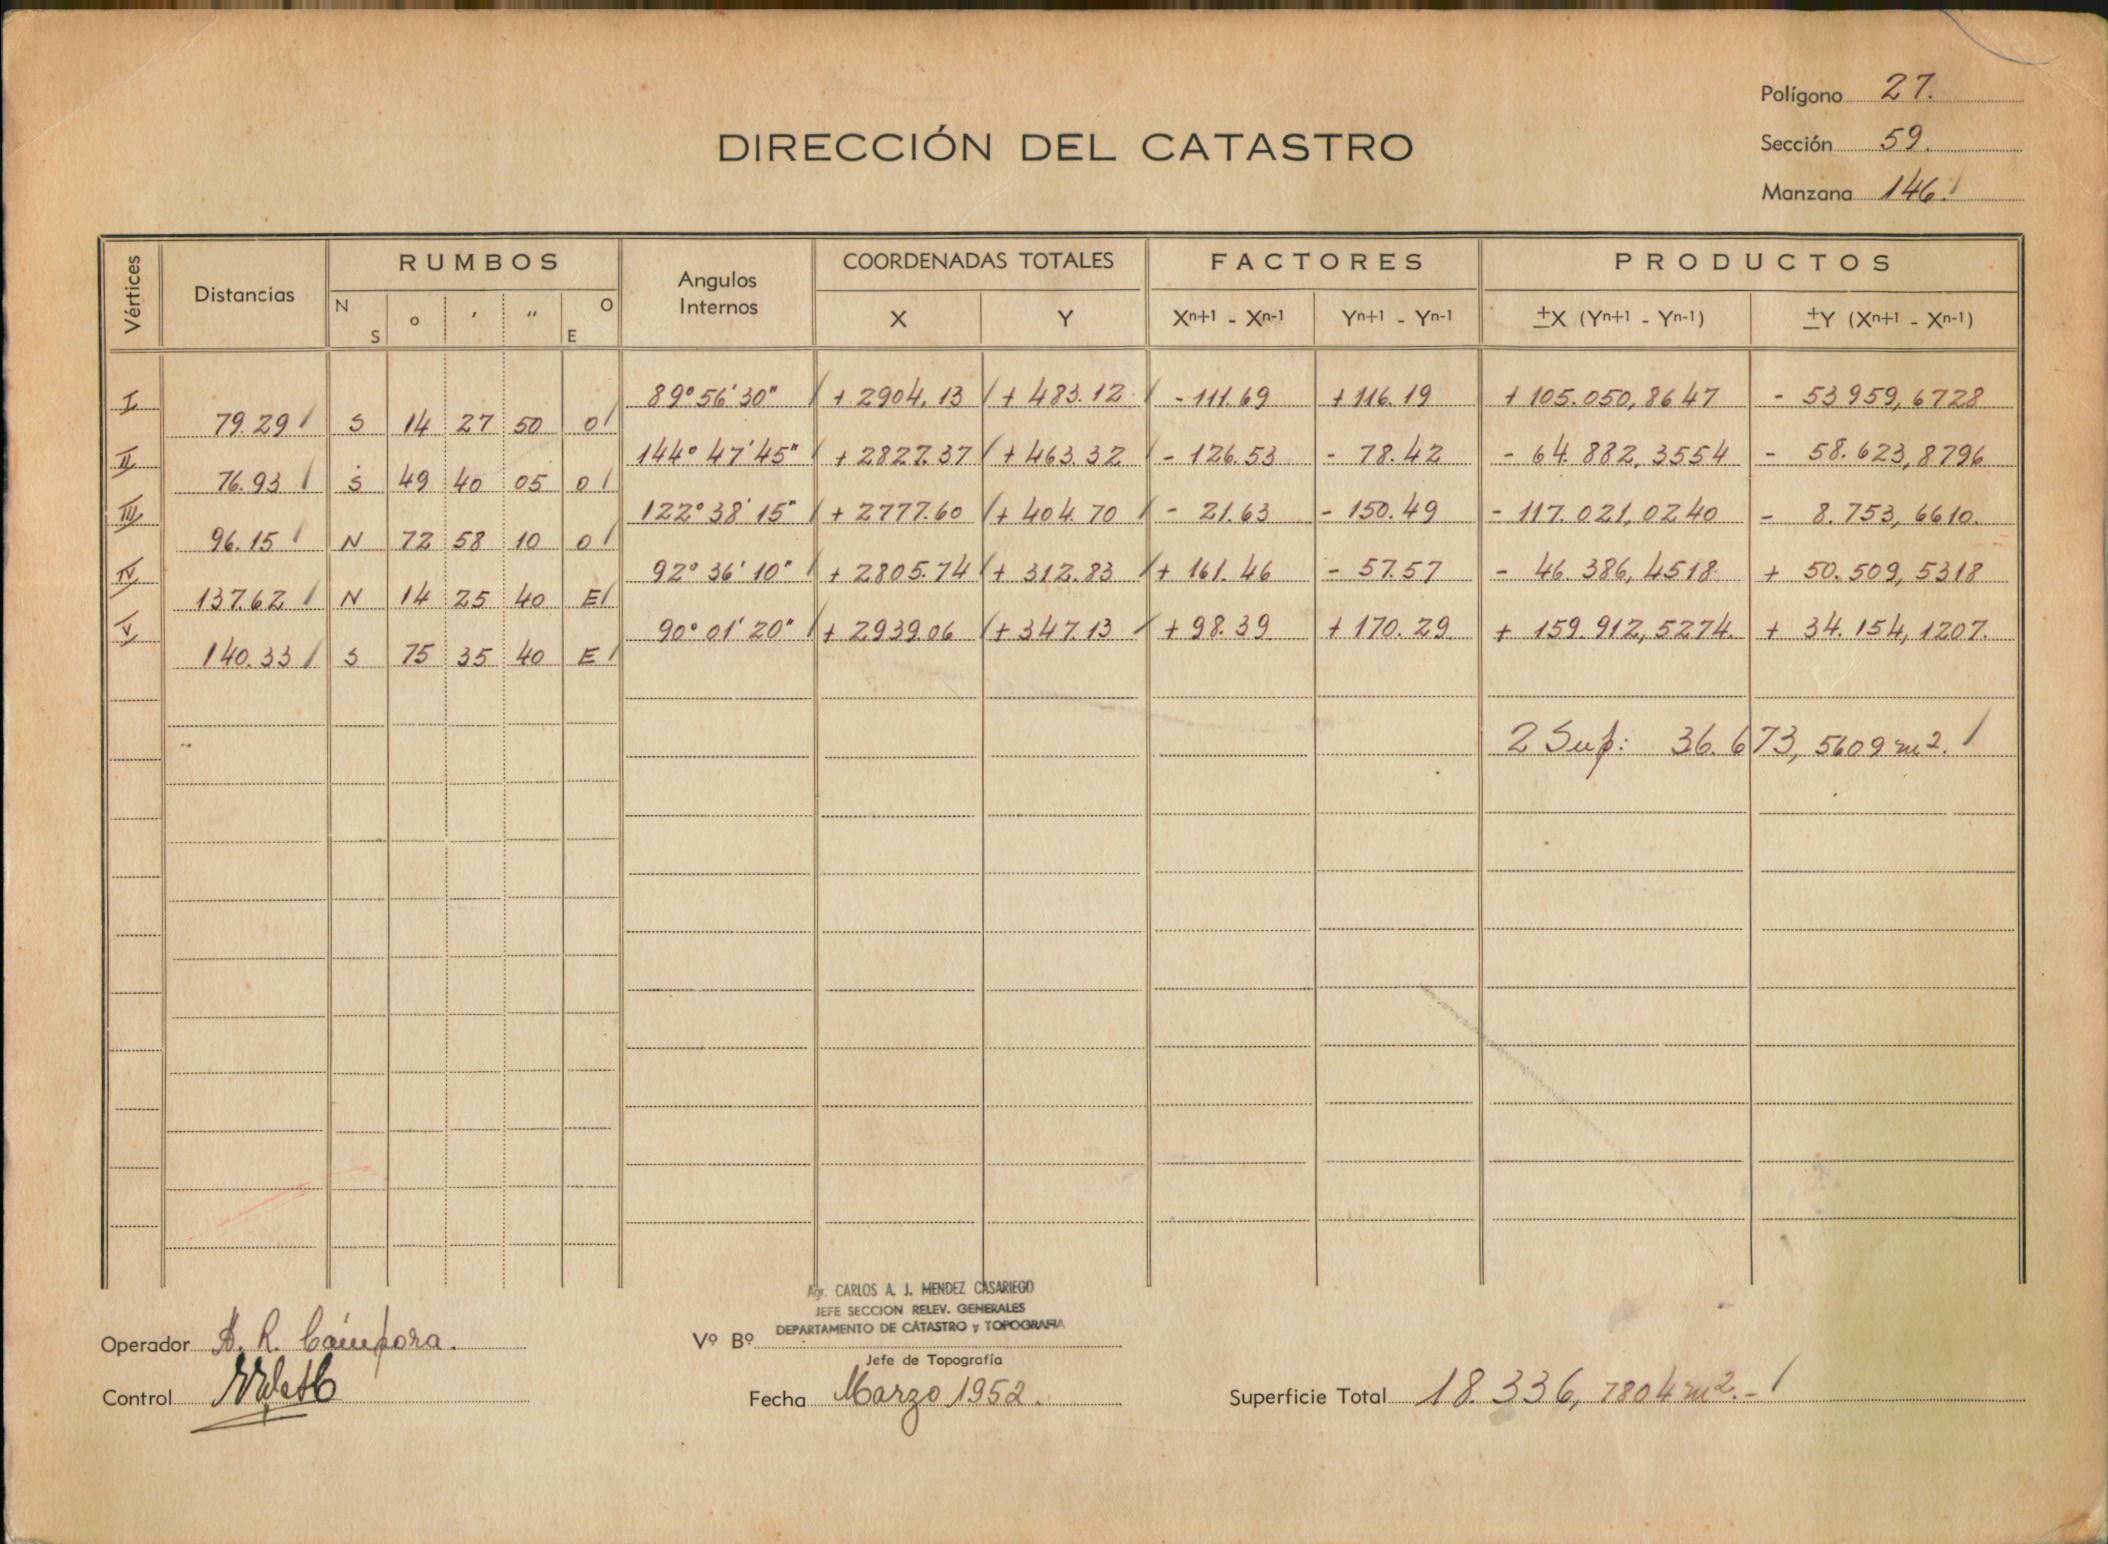 Polígono 27.
DIRECCIÓN DEL CATASTRO
Sección 59.
Manzana 146.
Vértices Distancias RUMBOS Angulos Internos COORDENADAS TOTALES FACTORES PRODUCTOS
N S o ′ ″ O E X Y Xn+1 - Xn-1 Yn+1 - Yn-1 ±X (Yn+1 - Yn-1) ±Y (Xn+1 - Xn-1)
I 89° 56' 30" + 2904,13 + 483.12 - 111.69 + 116.19 + 105.050,8647 - 53959,6728
79.29 S 14 27 50 O
II 144° 47' 45" + 2827.37 + 463.32 - 126.53 - 78.42 - 64.882,3554 - 58.623,8796
76.93 S 49 40 05 O
III 122° 38' 15" + 2777.60 + 404.70 - 21.63 - 150.49 - 117.021,0240 - 8.753,6610.
96.15 N 72 58 10 O
IV 92° 36' 10" + 2805.74 + 312.83 + 161.46 - 57.57 - 46.386,4518 + 50.509,5318
137.62 N 14 25 40 E
V 90° 01' 20" + 2939.06 + 347.13 + 98.39 + 170.29 + 159.912,5274. + 34.154,1207.
140.33 S 75 35 40 E
2 Sup: 36.673,5609 m2.
Agr. CARLOS A. J. MENDEZ CASARIEGO
JEFE SECCION RELEV. GENERALES
DEPARTAMENTO DE CATASTRO y TOPOGRAFIA
Operador A. R. Cámpora.
Vº Bº
Jefe de Topografía
Control
Fecha Marzo 1952.
Superficie Total 18.336,7804 m2.-